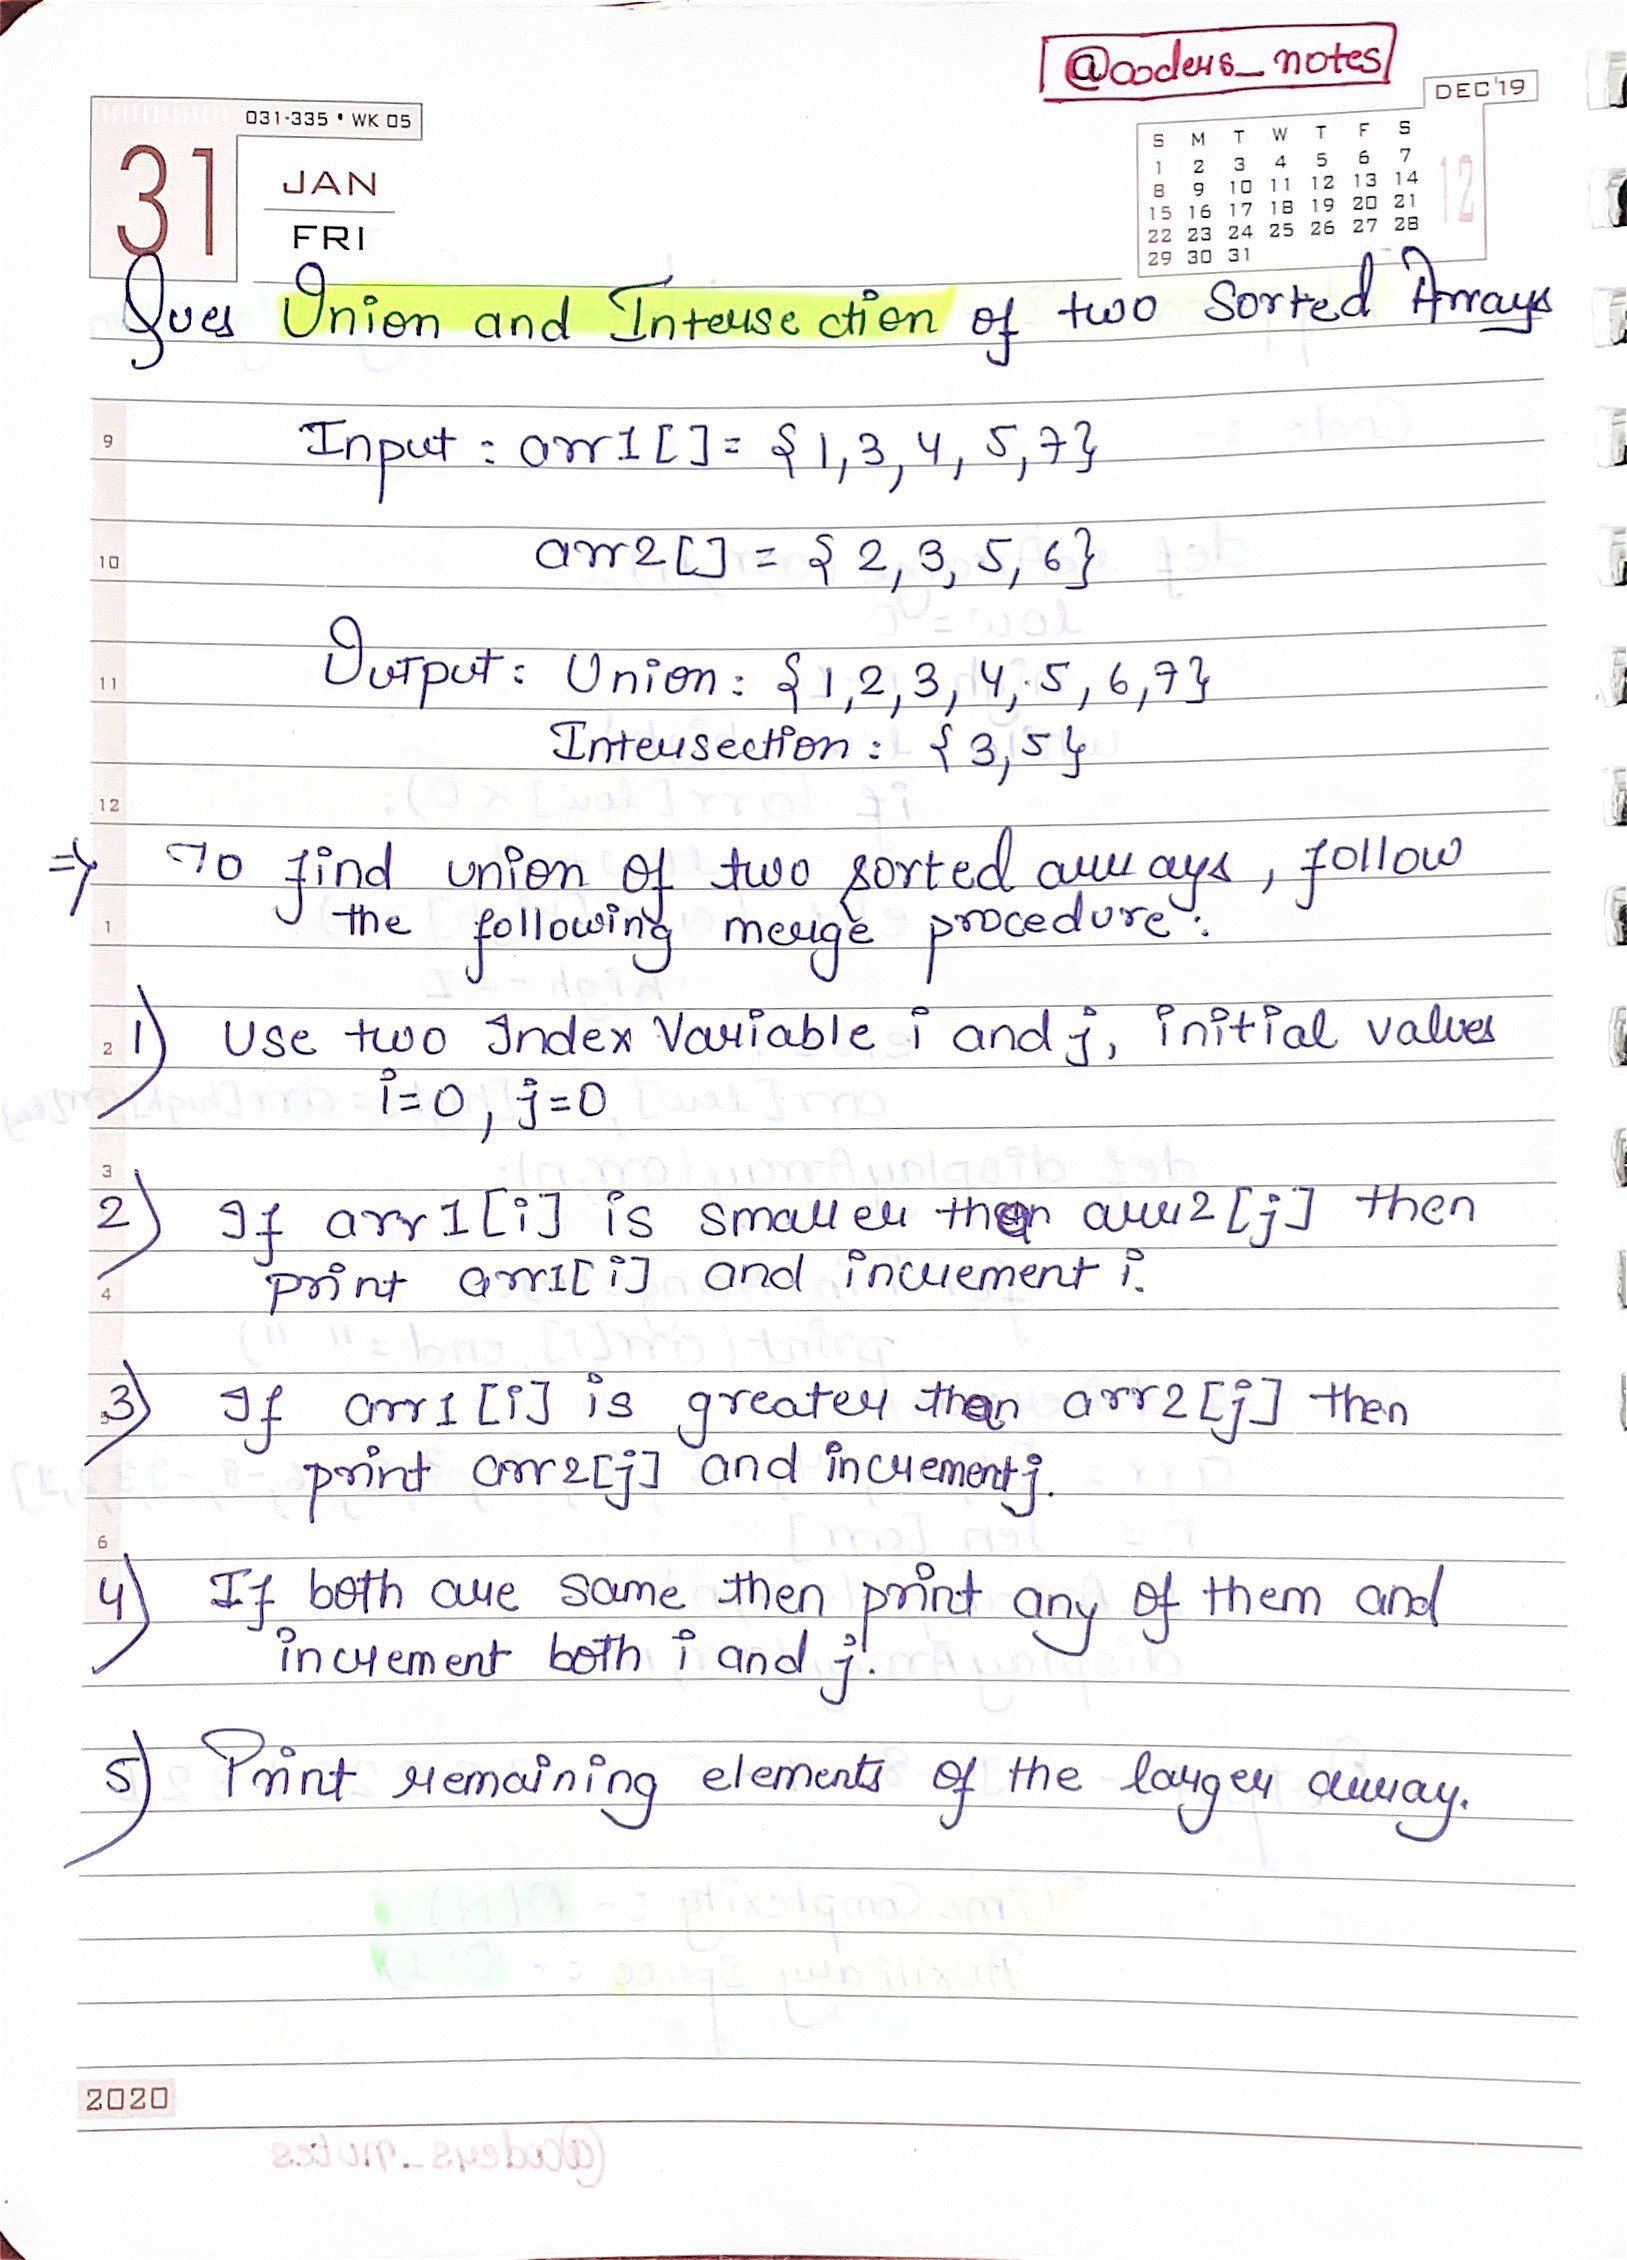 @coders_notes
DEC'19
031-335 • WK 05
31
JAN
FRI
S M T W T F S
1 2 3 4 5 6 7
8 9 10 11 12 13 14
15 16 17 18 19 20 21
22 23 24 25 26 27 28
29 30 31
12
Ques Union and Intersection of two Sorted Arrays
9
Input : arr1[] = {1,3,4,5,7}
10
arr2[] = {2,3,5,6}
11
Output : Union : {1,2,3,4,5,6,7}
Intersection : {3,5}
12
=> To find union of two sorted arrays, follow
1
the following merge procedure :
2
1) Use two Index Variable i and j, initial values
i=0, j=0
3
2) If arr1[i] is smaller than arr2[j] then
4
print arr1[i] and increment i.
5
3) If arr1[i] is greater than arr2[j] then
print arr2[j] and increment j.
6
4) If both are same then print any of them and
increment both i and j.
5) Print remaining elements of the larger array.
2020